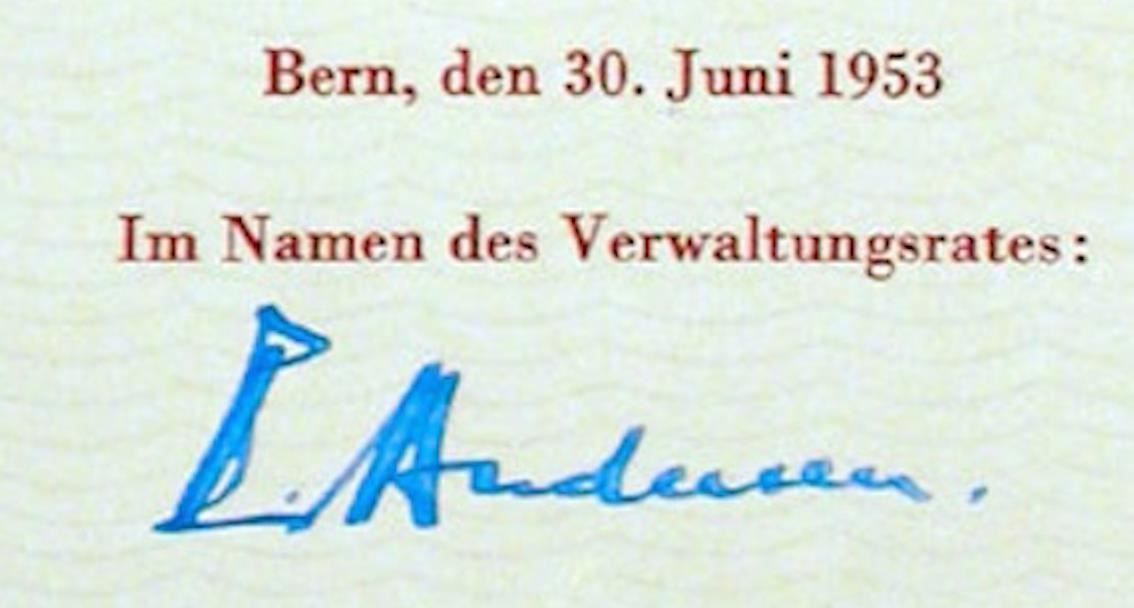 Bern, den 30. Juni 1953
Im Namen des Verwaltungsrates:
L. Andersen.